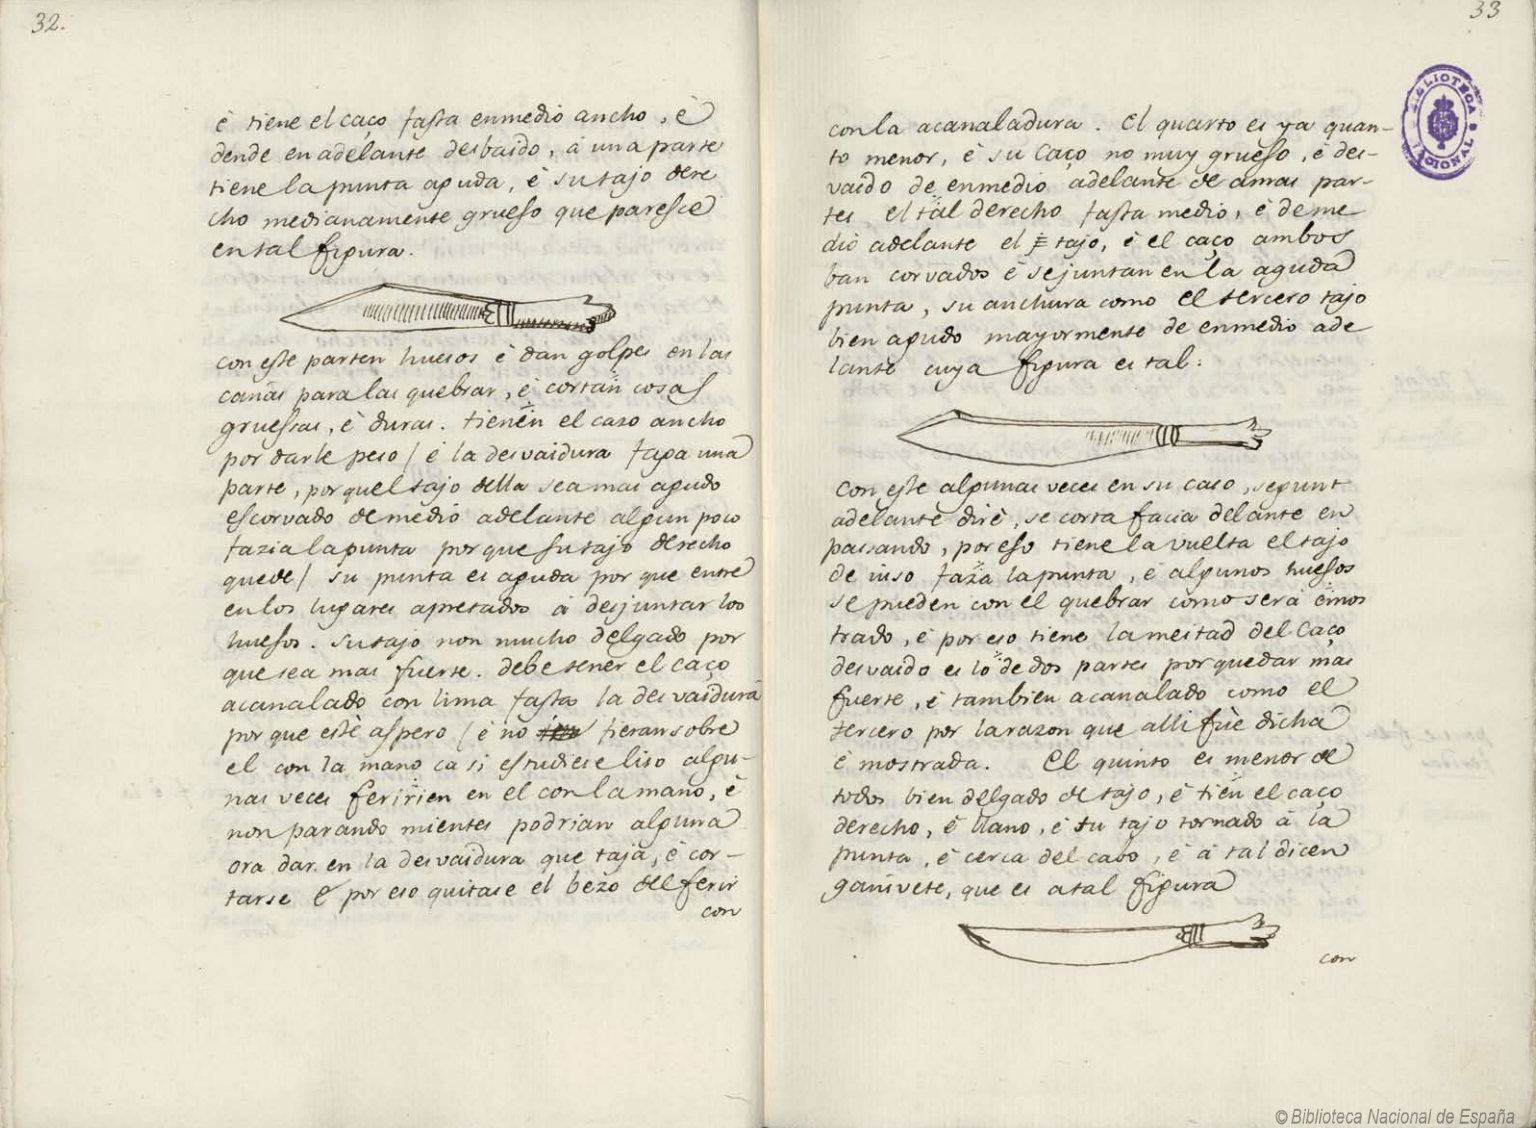 32.
è tiene el caço fasta enmedio ancho, è
dende en adelante desbaido, à una parte
tiene la punta aguda, è su tajo dere
cho medianamente grueso que paresce
en tal figura.
con este parten huesos è dan golpes en las
cañas para las quebrar, è cortan cosas
gruessas, è duras. tienen el cazo ancho
por darle peso / è la desvaidura faza una
parte, por quel tajo della sea mas agudo
escorvado de medio adelante algun poco
fazia la punta por que su tajo derecho
quede / su punta es aguda por que entre
en los lugares apretados à desjuntar los
huesos. su tajo non mucho delgado por
que sea mas fuerte. debe tener el caço
acanalado con lima fasta la desvaidura
por que estè aspero / è no fieran sobre
el con la mano ca si estudiese liso algu-
nas veces feririen en el con la mano, è
non parando mientes podrian alguna
ora dar en la desvaidura que taja, è cor-
tarse è por eso quitase el bezo del ferir
con
33
con la acanaladura. El quarto es ya quan-
to menor, è su caço no muy grueso, è des-
vaido de enmedio adelante de amas par-
tes el tal derecho fasta medio, è de me
dio adelante el tajo, è el caço ambos
ban corvados è se juntan en la aguda
punta, su anchura como el tercero tajo
bien agudo mayormente de enmedio ade
lante cuya figura es tal:
con este algunas veces en su caso, segunt
adelante dirè, se corta facia delante en
pasando, por eso tiene la vuelta el tajo
de iuso faza la punta, è algunos huesos
se pueden con el quebrar como serà emos
trado, è por eso tiene la meitad del caço
desvaido es lo de dos partes por quedar mas
fuerte, è tambien acanalado como el
tercero por la razon que alli fuè dicha
è mostrada. El quinto es menor de
todos bien delgado de tajo, è tien el caço
derecho, è llano, è su tajo tornado à la
punta, è cerca del cabo, è à tal dicen
gañivete, que es atal figura
con
BIBLIOTECA NACIONAL
© Biblioteca Nacional de España